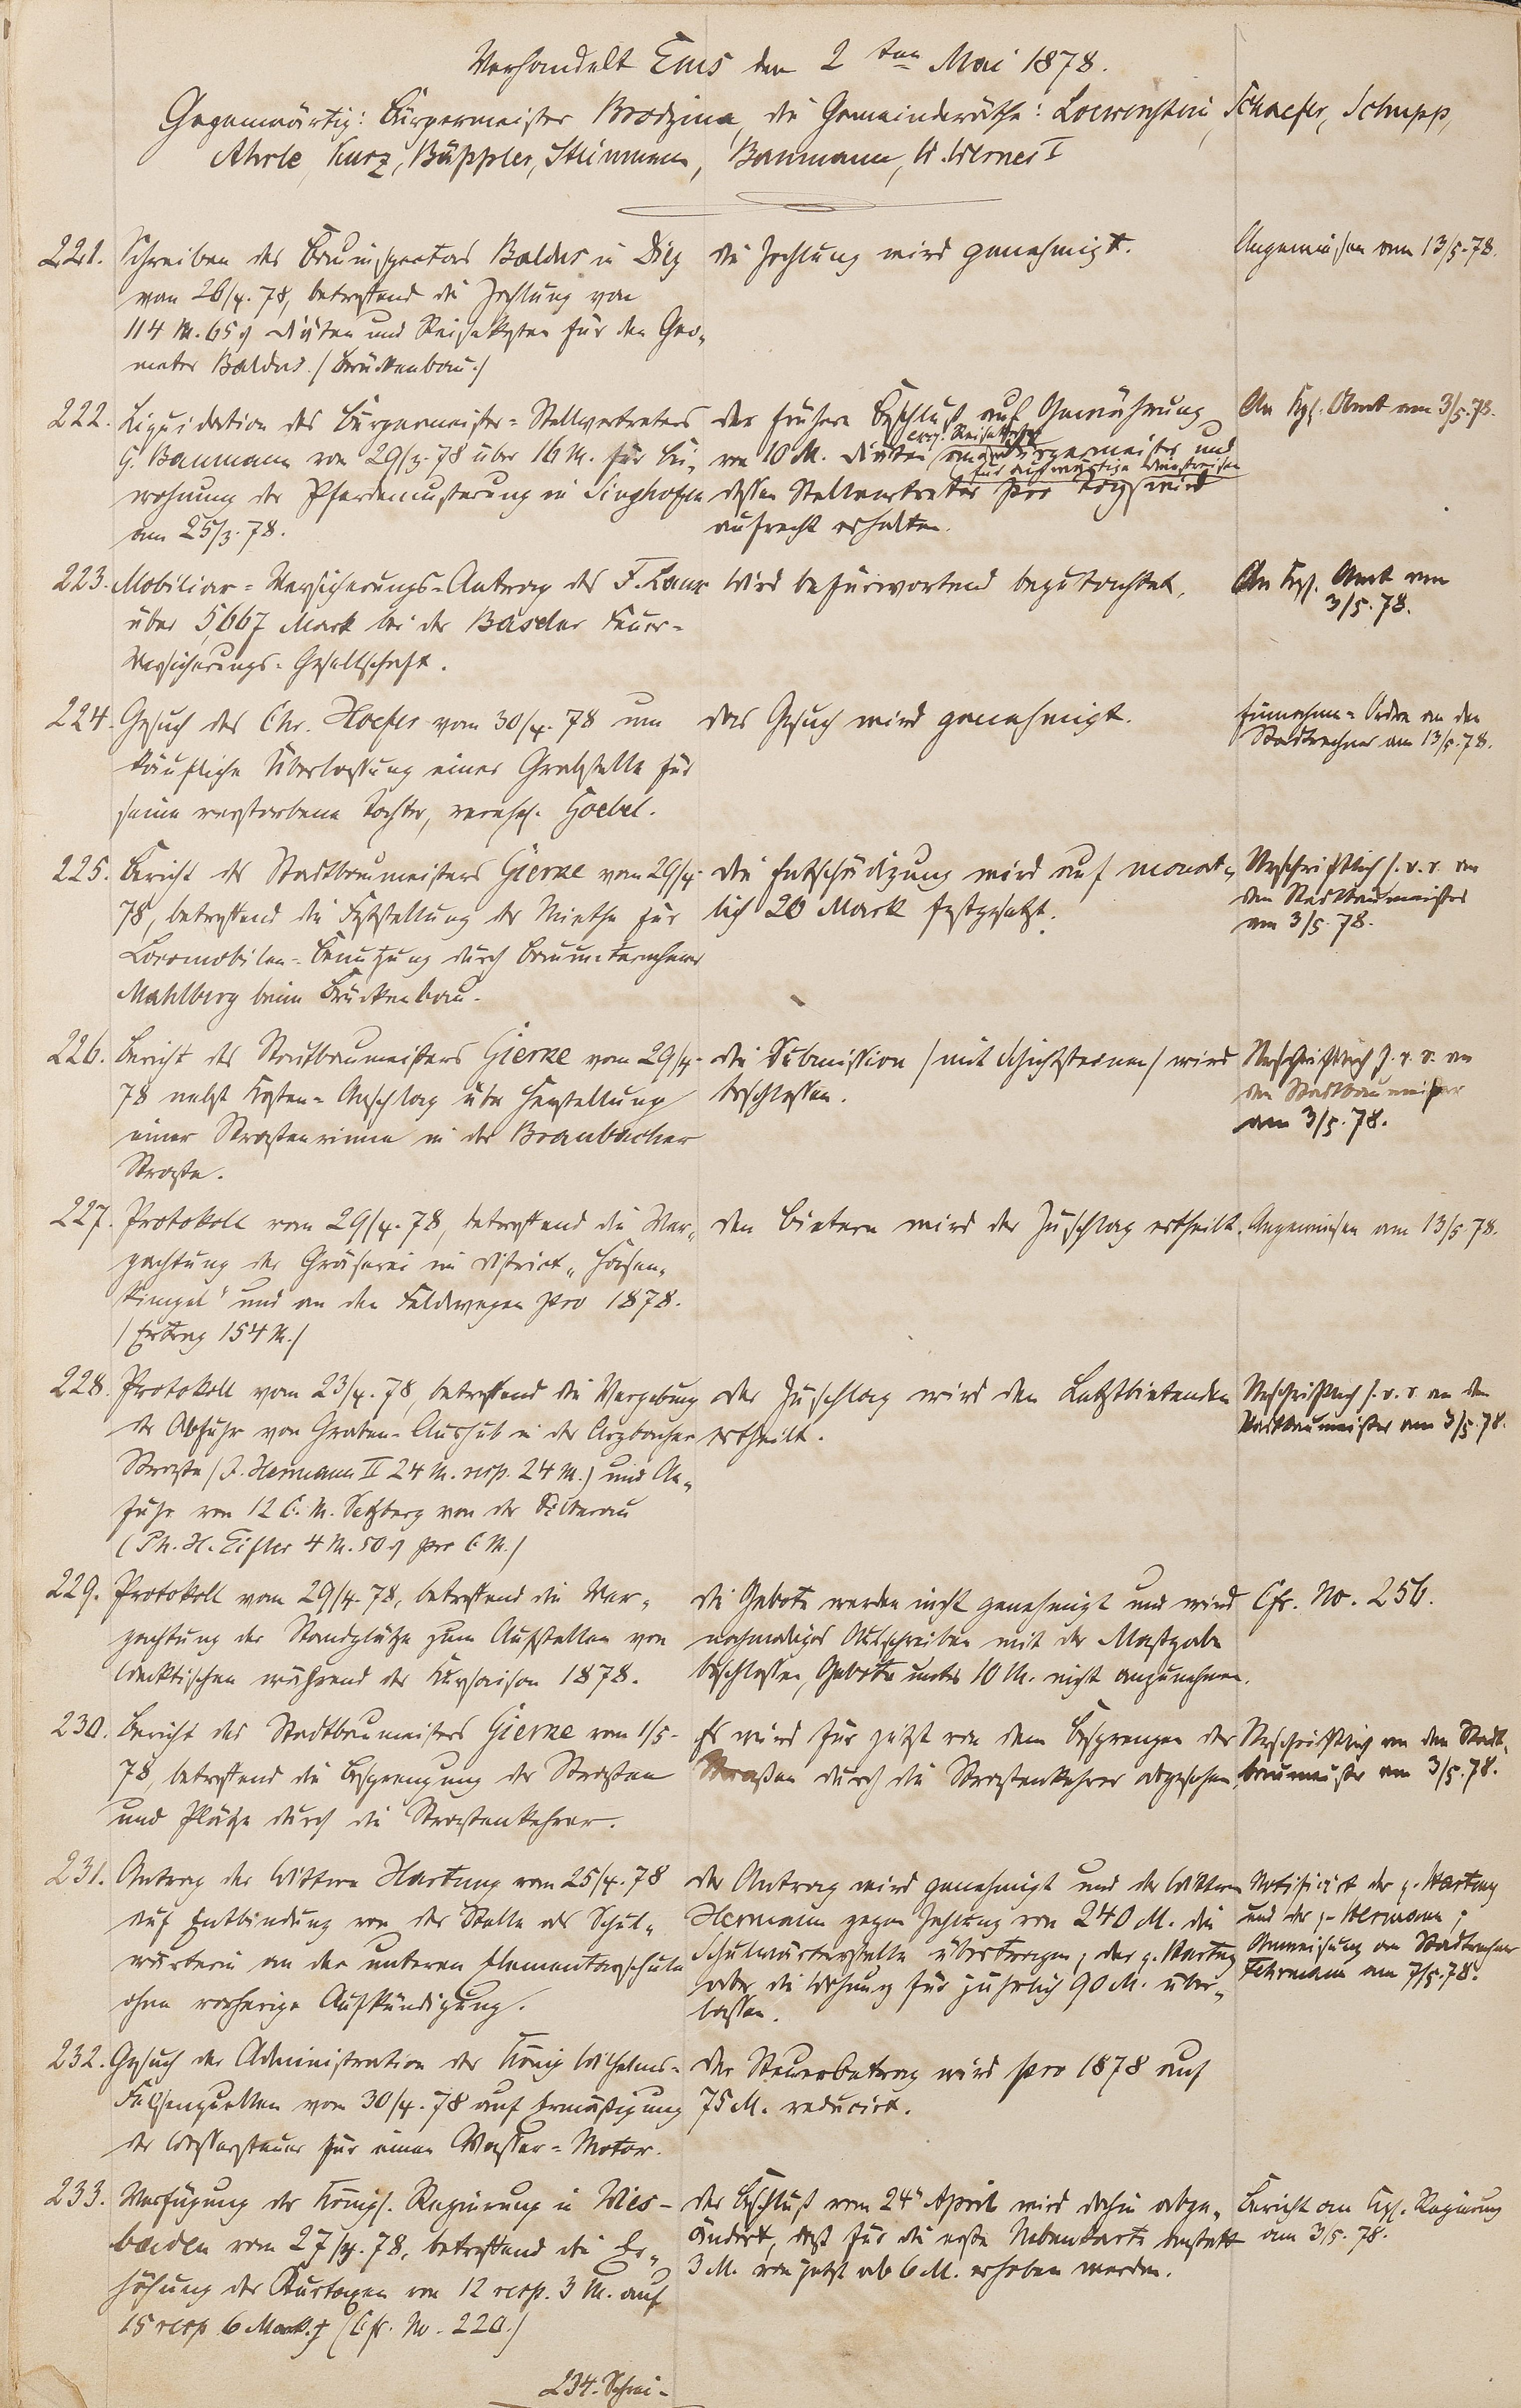 Verhandelt Ems den 2ten Mai 1878.
Gegenwärtig: Bürgermeister Brodzina, die Gemeinderäthe: Loewenstein, Schaefer, Schupp,
Ahrle, Kurz, Büppler, Stemmer, Baumann, W. Werner I
221. Schreiben des Bauinspectors Baldus in Diez
von 26/4.78, betreffend die Zahlung von
114 M. 65 ₰ Diäten und Reisekosten für den Geo„
meter Baldus. /Brückenbau./
die Zahlung wird genehmigt.
Angewiesen am 13/5.78.
222. Liquidation des Bürgermeister=Stellvertreters
G. Baumann von 29/3.78 über 16 M. für Bei„
wohnung der Pferdemusterung in Singhofen
am 25/3.78.
der frühere Beschluß auf Gewährung
excl. Reisekosten
von 10 M. Diäten an Bürgermeister und
für auswärtige Dienstreisen
dessen Stellvertreter pro Tag wird
aufrecht erhalten.
An Kgl. Amt am 3/5.78.
223. Mobiliar=Versicherungs=Antrag des F. Laux
über 5667 Mark bei der Baseler Feuer=
Versicherungs=Gesellschaft.
Wird befürwortend begutachtet.
An Kgl. Amt am
3/5.78.
224. Gesuch des Chr. Hoefer vom 30/4.78 um
käufliche Überlassung einer Grabstelle für
seine verstorbene Tochter, verehel. Goebel.
das Gesuch wird genehmigt.
Einnahme=Ordre an den
Stadtrechner am 13/5.78.
225. Bericht des Stadtbaumeisters Gierke vom 29/4.
78, betreffend die Feststellung der Miethe für
Locomobilen=Benutzung durch Bauunternehmer
Mahlberg beim Brückenbau.
die Entschädigung wird auf monat„
lich 20 Mark festgesetzt.
Urschriftlich s. v. r. an
den Stadtbaumeister
am 3/5.78.
226. Bericht des Stadtbaumeisters Gierke vom 29/4.
78 nebst Kosten=Anschlag über Herstellung
einer Strassenrinne in der Braubacher
Strasse.
die Submission /mit Schichtsteinen/ wird
beschlossen.
Urschriftlich s. v. r. an
den Stadtbaumeister
am 3/5.78.
227. Protokoll vom 29/4.78, betreffend die Ver„
pachtung der Gräserei im District „Hasen„
kimpel“ und an den Feldwegen pro 1878.
/Ertrag 154 M./
den Bietern wird der Zuschlag ertheilt.
Angewiesen am 13/5.78.
228. Protokoll vom 23/4.78 betreffend die Vergebung
der Abfuhr von Graben=Aushub in der Arzbacher
Strasse (J. Hermann II 24 M. resp. 24 M.) und An„
fuhr von 12 C. M. Setzberg von der Silberau
(Ph. H. Eifler 4 M. 50 ₰ pro C. M.)
der Zuschlag wird den Letztbietenden
ertheilt.
Urschriftlich s. v. r. an den
Stadtbaumeister am 3/5.78.
229. Protokoll vom 29/4.78, betreffend die Ver„
pachtung der Standplätze zum Aufstellen von
Wecktischen während der Kursaison 1878.
die Gebote werden nicht genehmigt und wird
nochmaliges Ausschreiben mit der Massgabe
beschlossen, Gebote unter 10 M. nicht anzunehmen.
Cfr. No. 256.
230. Bericht des Stadtbaumeisters Gierke vom 1/5.
78, betreffend die Besprengung der Strassen
und Plätze durch die Strassenkehrer.
Es wird für jetzt von dem Besprengen der
Straßen durch die Strassenkehrer abgesehen.
Urschriftlich an den Stadt„
baumeister am 3/5.78.
231. Antrag der Wittwe Hartung vom 25/4.78
auf Entbindung von der Stelle als Schul„
wärterin an der unteren Elementarschule
ohne vorherige Aufkündigung.
der Antrag wird genehmigt und der Wittwe
Hermann gegen Zahlung von 240 M. die
Schulwärterstelle übertragen, der p. Hartung
aber die Wohnung für jährlich 90 M. über„
lassen.
Notificirt der p. Hartung
und der p. Hermann;
Anweisung an Stadtrechner
Fehrmann am 7/5.78.
232. Gesuch der Administration der König Wilhelms=
Felsenquellen vom 30/4.78 auf Ermäßigung
der Wassersteuer für einen Wasser=Motor.
der Steuerbetrag wird pro 1878 auf
75 M. reducirt.
233. Verfügung der Königl. Regierung in Wies=
baden vom 27/4.78, betreffend die Er„
höhung der Kurtaxen von 12 resp. 3 M. auf
15 resp 6 Mark. (Cfr. No. 220.)
der Beschluß vom 24n April wird dahin abge„
ändert, daß für die erste Nebenkarte anstatt
3 M. von jetzt ab 6 M. erhoben werden.
Bericht an Kgl. Regierung
am 3/5.78.
234. Schrei=